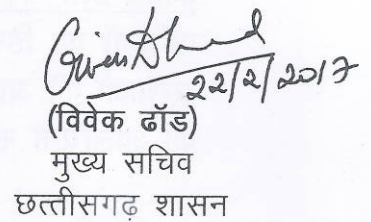 22/2/2017
(विवेक ढॉड)
मुख्य सचिव
छत्तीसगढ़ शासन